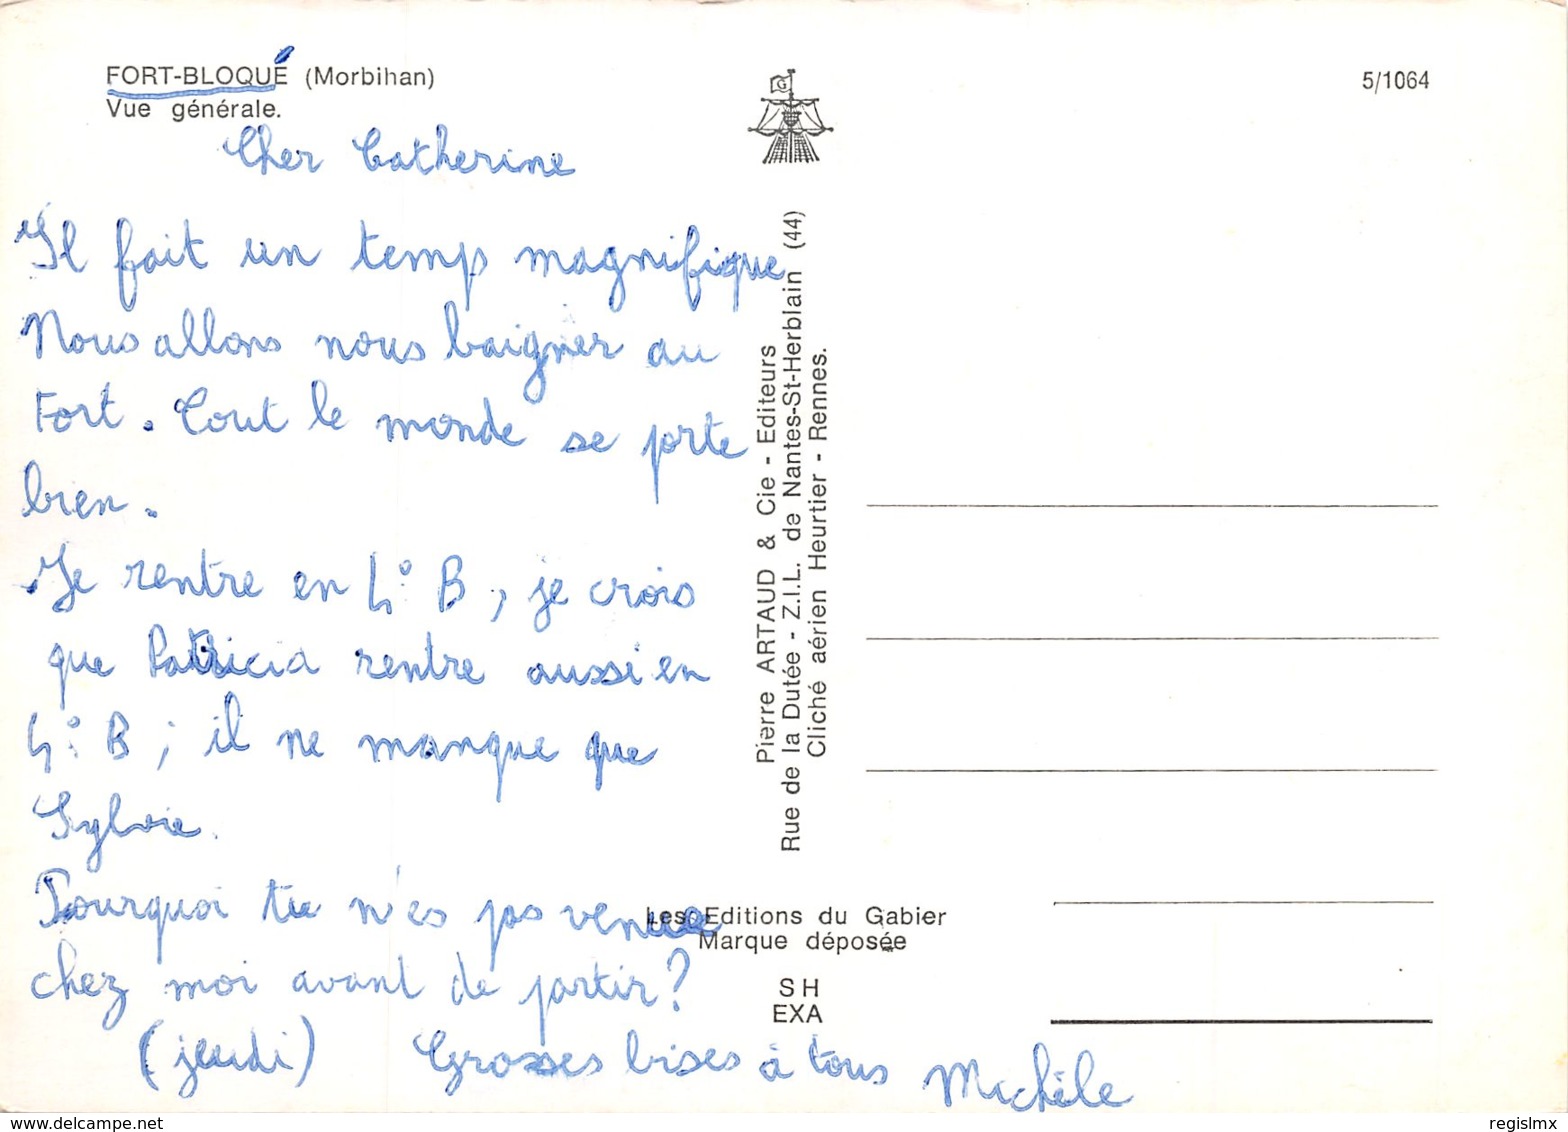 FORT-BLOQUÉ (Morbihan)
Vue générale.
5/1064
G
Cher Catherine
Il fait un temps magnifique
Nous allons nous baigner au
Fort. Tout le monde se porte
bien.
Je rentre en 4° B, je crois
que Patricia rentre aussi en
4° B ; il ne manque que
Sylvie.
Pourquoi tu n'es pas venue
chez moi avant de partir ?
(jeudi) Grosses bises à tous Michèle
Pierre ARTAUD & Cie - Editeurs
Rue de la Dutée - Z.I.L. de Nantes-St-Herblain (44)
Cliché aérien Heurtier - Rennes.
Les Editions du Gabier
Marque déposée
SH
EXA
www.delcampe.net
regislmx